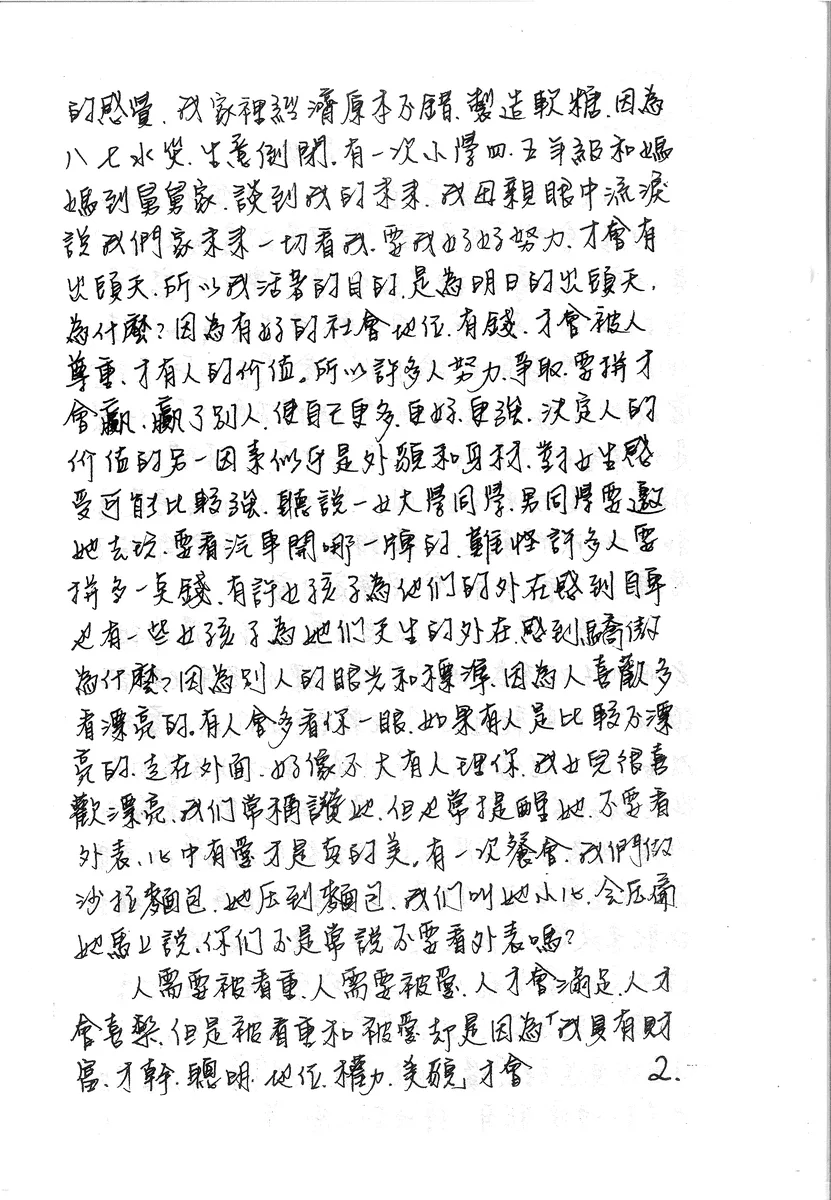 的感覺、我家裡經濟原本不錯、製造軟糖、因為
八七水災、生意倒閉。有一次小學四、五年級和媽
媽到舅舅家、談到我的未來、我母親眼中流淚
說我們家未來一切看我、要我好好努力、才會有
出頭天、所以我活著的目的、是為明日的出頭天,
為什麼?因為有好的社會地位、有錢、才會被人
尊重、才有人的价值。所以許多人努力、爭取、要拼才
會贏、贏了別人、使自己更多、更好、更強、決定人的
价值的另一因素似乎是外貌和身材、對女生感
受可能比較強、聽說一女大學同學、男同學要邀
她去玩、要看汽車開哪一牌的、難怪許多人要
拼多一点錢、有許女孩子為他们的外在感到自卑
也有一些女孩子為她们天生的外在、感到驕傲
為什麼?因為別人的眼光和標準、因為人喜歡多
看漂亮的。有人會多看你一眼、如果有人是比較不漂
亮的、走在外面、好像不大有人理你、我女兒很喜
歡漂亮、我们常稱讚她、但也常提醒她、不要看
外表、心中有愛才是真的美。有一次餐會、我們做
沙拉麵包、她压到麵包、我们叫她小心、会压扁
她馬上說、你们不是常說不要看外表嗎?
人需要被看重、人需要被愛、人才會滿足、人才
會喜樂、但是被看重和被愛却是因為「我具有財
富、才幹、聰明、地位、權力、美貌」才會 2.